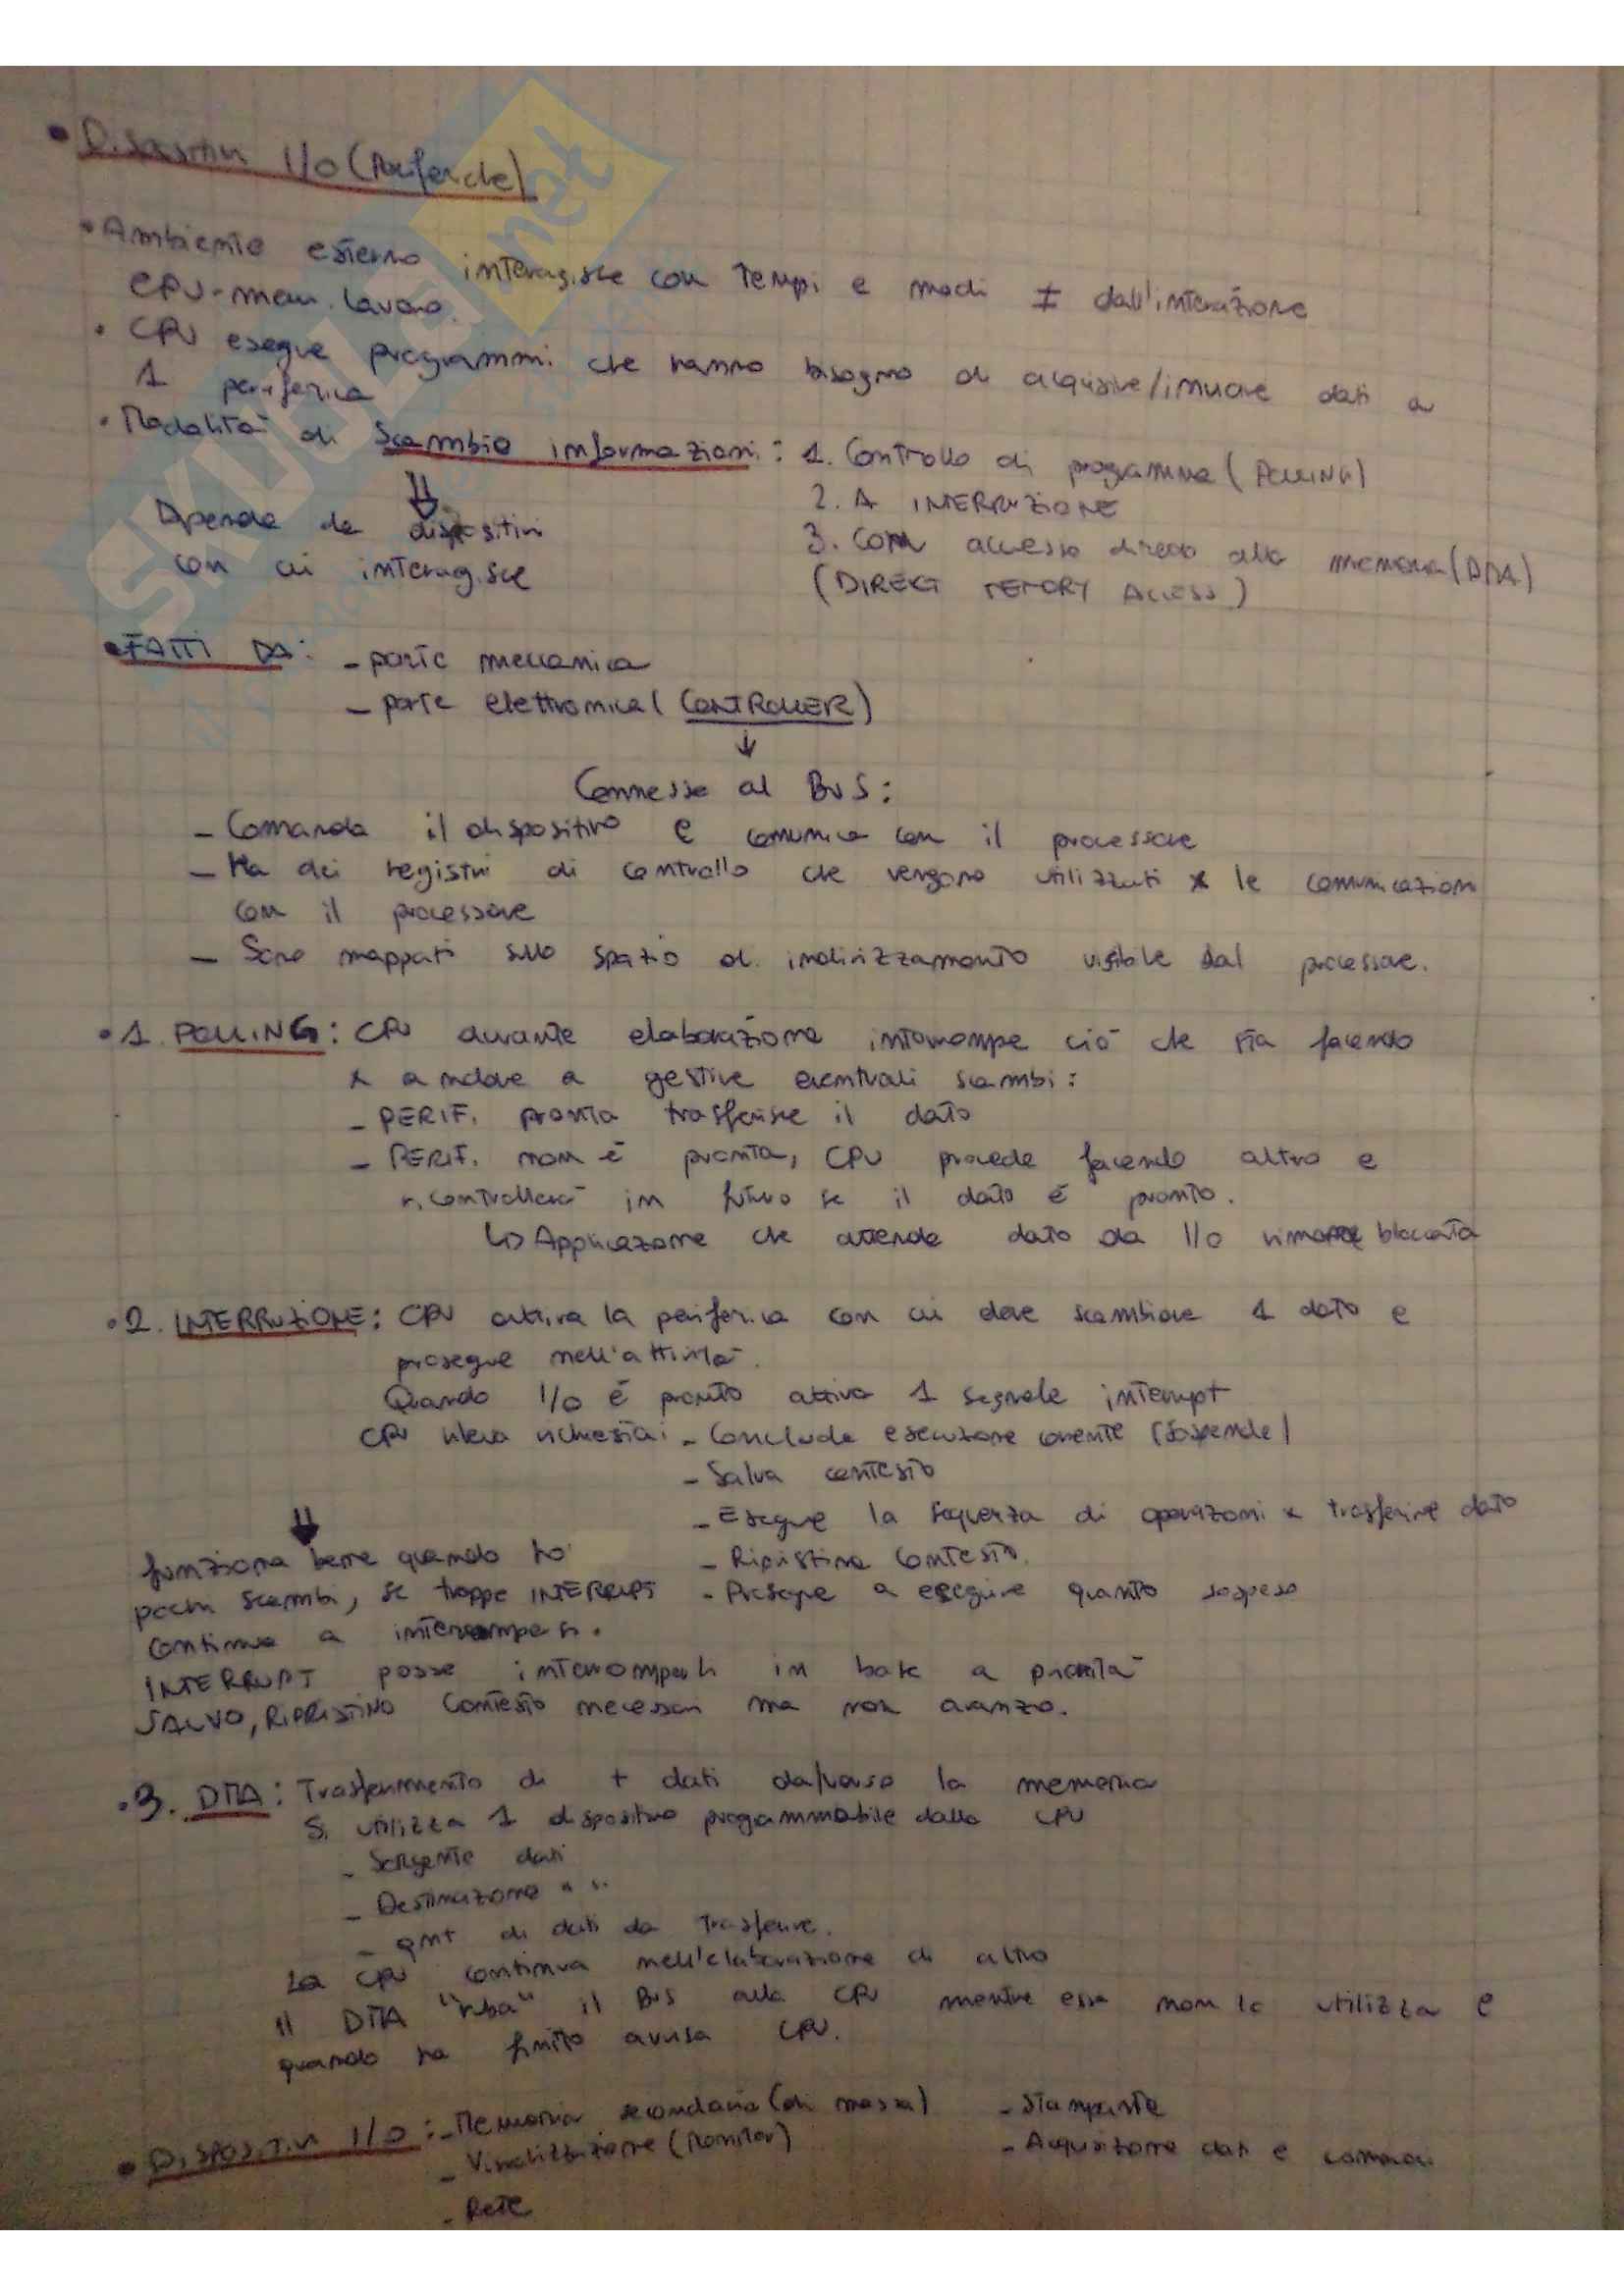 • Dispositivi I/O (Periferiche)
• Ambiente esterno interagisce con tempi e modi ≠ dall'interazione
CPU-mem. lavoro.
• CPU esegue programmi che hanno bisogno di acquisire/inviare dati a
1 periferica
• Modalità di Scambio informazioni: 1. Controllo di programma (POLLING)
2. A INTERRUZIONE
⇓
Dipende da dispositivi
3. Con accesso diretto alla memoria (DMA)
con cui interagisce
(DIRECT MEMORY ACCESS)
• FATTI DA: - parte meccanica
- parte elettronica (CONTROLLER)
↓
Connesse al BUS:
- Comanda il dispositivo e comunica con il processore
- Ha dei registri di controllo che vengono utilizzati x le comunicazioni
con il processore
- Sono mappati sullo spazio di indirizzamento visibile dal processore.
• 1. POLLING: CPU durante elaborazione interrompe ciò che sta facendo
x andare a gestire eventuali scambi:
- PERIF. pronta trasferisce il dato
- PERIF. non è pronta, CPU procede facendo altro e
ricontrollerà in futuro se il dato è pronto.
↳ Applicazione che attende dato da I/O rimane bloccata
• 2. INTERRUZIONE: CPU attiva la periferica con cui deve scambiare 1 dato e
prosegue nell'attività.
Quando I/O è pronto attiva 1 segnale interrupt
CPU rileva richiesta: - Conclude esecuzione corrente (sospende)
- Salva contesto
- Esegue la sequenza di operazioni x trasferire dato
⇓
funziona bene quando ho
- Ripristina contesto.
pochi scambi, se troppe INTERRUPT
- Prosegue a eseguire quanto sospeso
continua a interrompersi.
INTERRUPT posso interromperli in base a priorità
SALVO, RIPRISTINO contesto necessari ma non avanzo.
• 3. DMA: Trasferimento di + dati da/verso la memoria
Si utilizza 1 dispositivo programmabile dalla CPU
- Sorgente dati
- Destinazione " "
- qnt di dati da trasferire.
La CPU continua nell'elaborazione di altro
Il DMA "ruba" il BUS alla CPU mentre essa non lo utilizza e
quando ha finito avvisa CPU.
• Dispositivi I/O: - Memoria secondaria (di massa) - Stampante
- Visualizzazione (Monitor) - Acquisizione dati e comandi
- Rete
SKUOLA.net